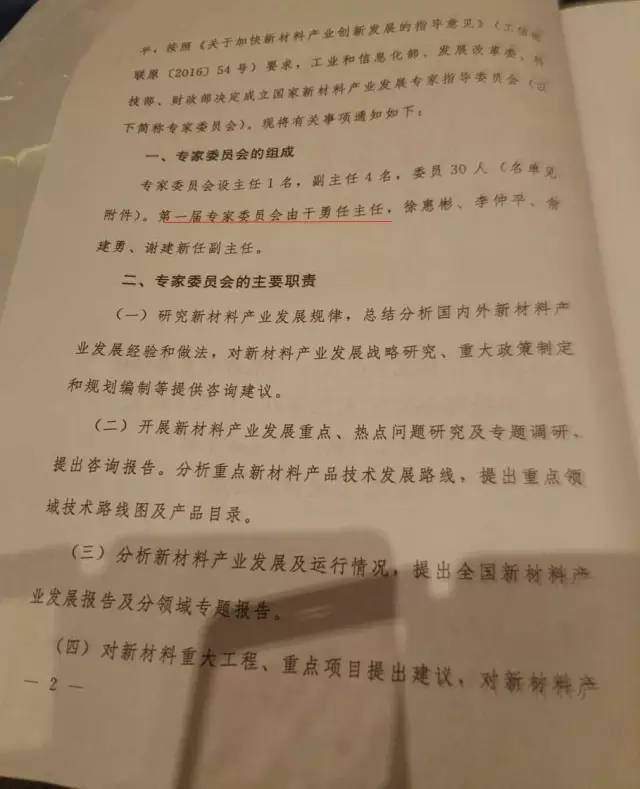 平，按照《关于加快新材料产业创新发展的指导意见》（工信部
联原〔2016〕54 号）要求，工业和信息化部、发展改革委、科
技部、财政部决定成立国家新材料产业发展专家指导委员会（以
下简称专家委员会）。现将有关事项通知如下：
一、专家委员会的组成
专家委员会设主任 1 名，副主任 4 名，委员 30 人（名单见
附件）。第一届专家委员会由干勇任主任，徐惠彬、李仲平、
建勇、谢建新任副主任。
二、专家委员会的主要职责
（一）研究新材料产业发展规律，总结分析国内外新材料产
业发展经验和做法，对新材料产业发展战略研究、重大政策制定
和规划编制等提供咨询建议。
（二）开展新材料产业发展重点、热点问题研究及专题调研，
提出咨询报告。分析重点新材料产品技术发展路线，提出重点领
域技术路线图及产品目录。
（三）分析新材料产业发展及运行情况，提出全国新材料产
业发展报告及分领域专题报告。
（四）对新材料重大工程、重点项目提出建议，对新材料产
— 2 —